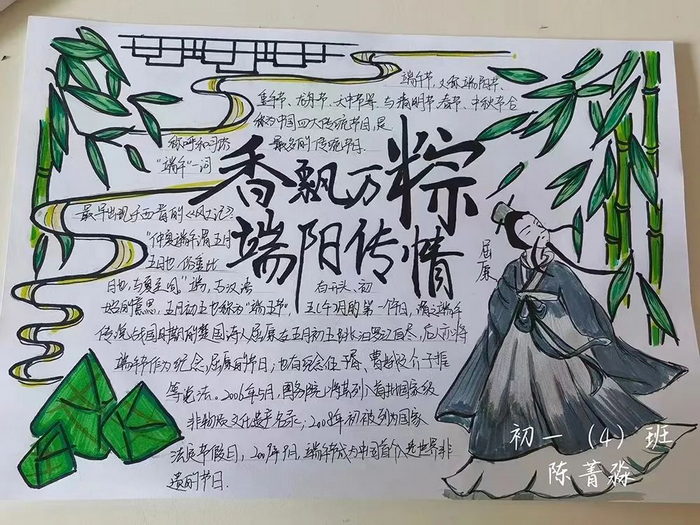 端午节,又称端阳节、
重午节、龙舟节、大中节等,与清明节、春节、中秋节合
称为中国四大传统节日,是
最
传统节日.
称呼和习俗
"端午"一词
香飘万粽
端阳传情
最早出现于西晋的《风土记》:
"仲夏端午谓五月
五日也 俗重此
日也
"端,古汉语
有开头、初
始的意思,五月初五也称为"端五节",
午月的第一个午日,谓之端午
传说战国时期的楚国诗人屈原在五月初五跳汨罗江自尽,后人亦将
端午节作为纪念屈原的节日;也有纪念伍子胥、曹娥及介子推
等说法。2006年5月,国务院
将其列入首批国家级
非物质文化遗产名录;2008年初被列为国家
法定节假日,
9月,端午节成为中国首个入选世界非
遗的节日.
屈原
初一(4)班
陈菁淼